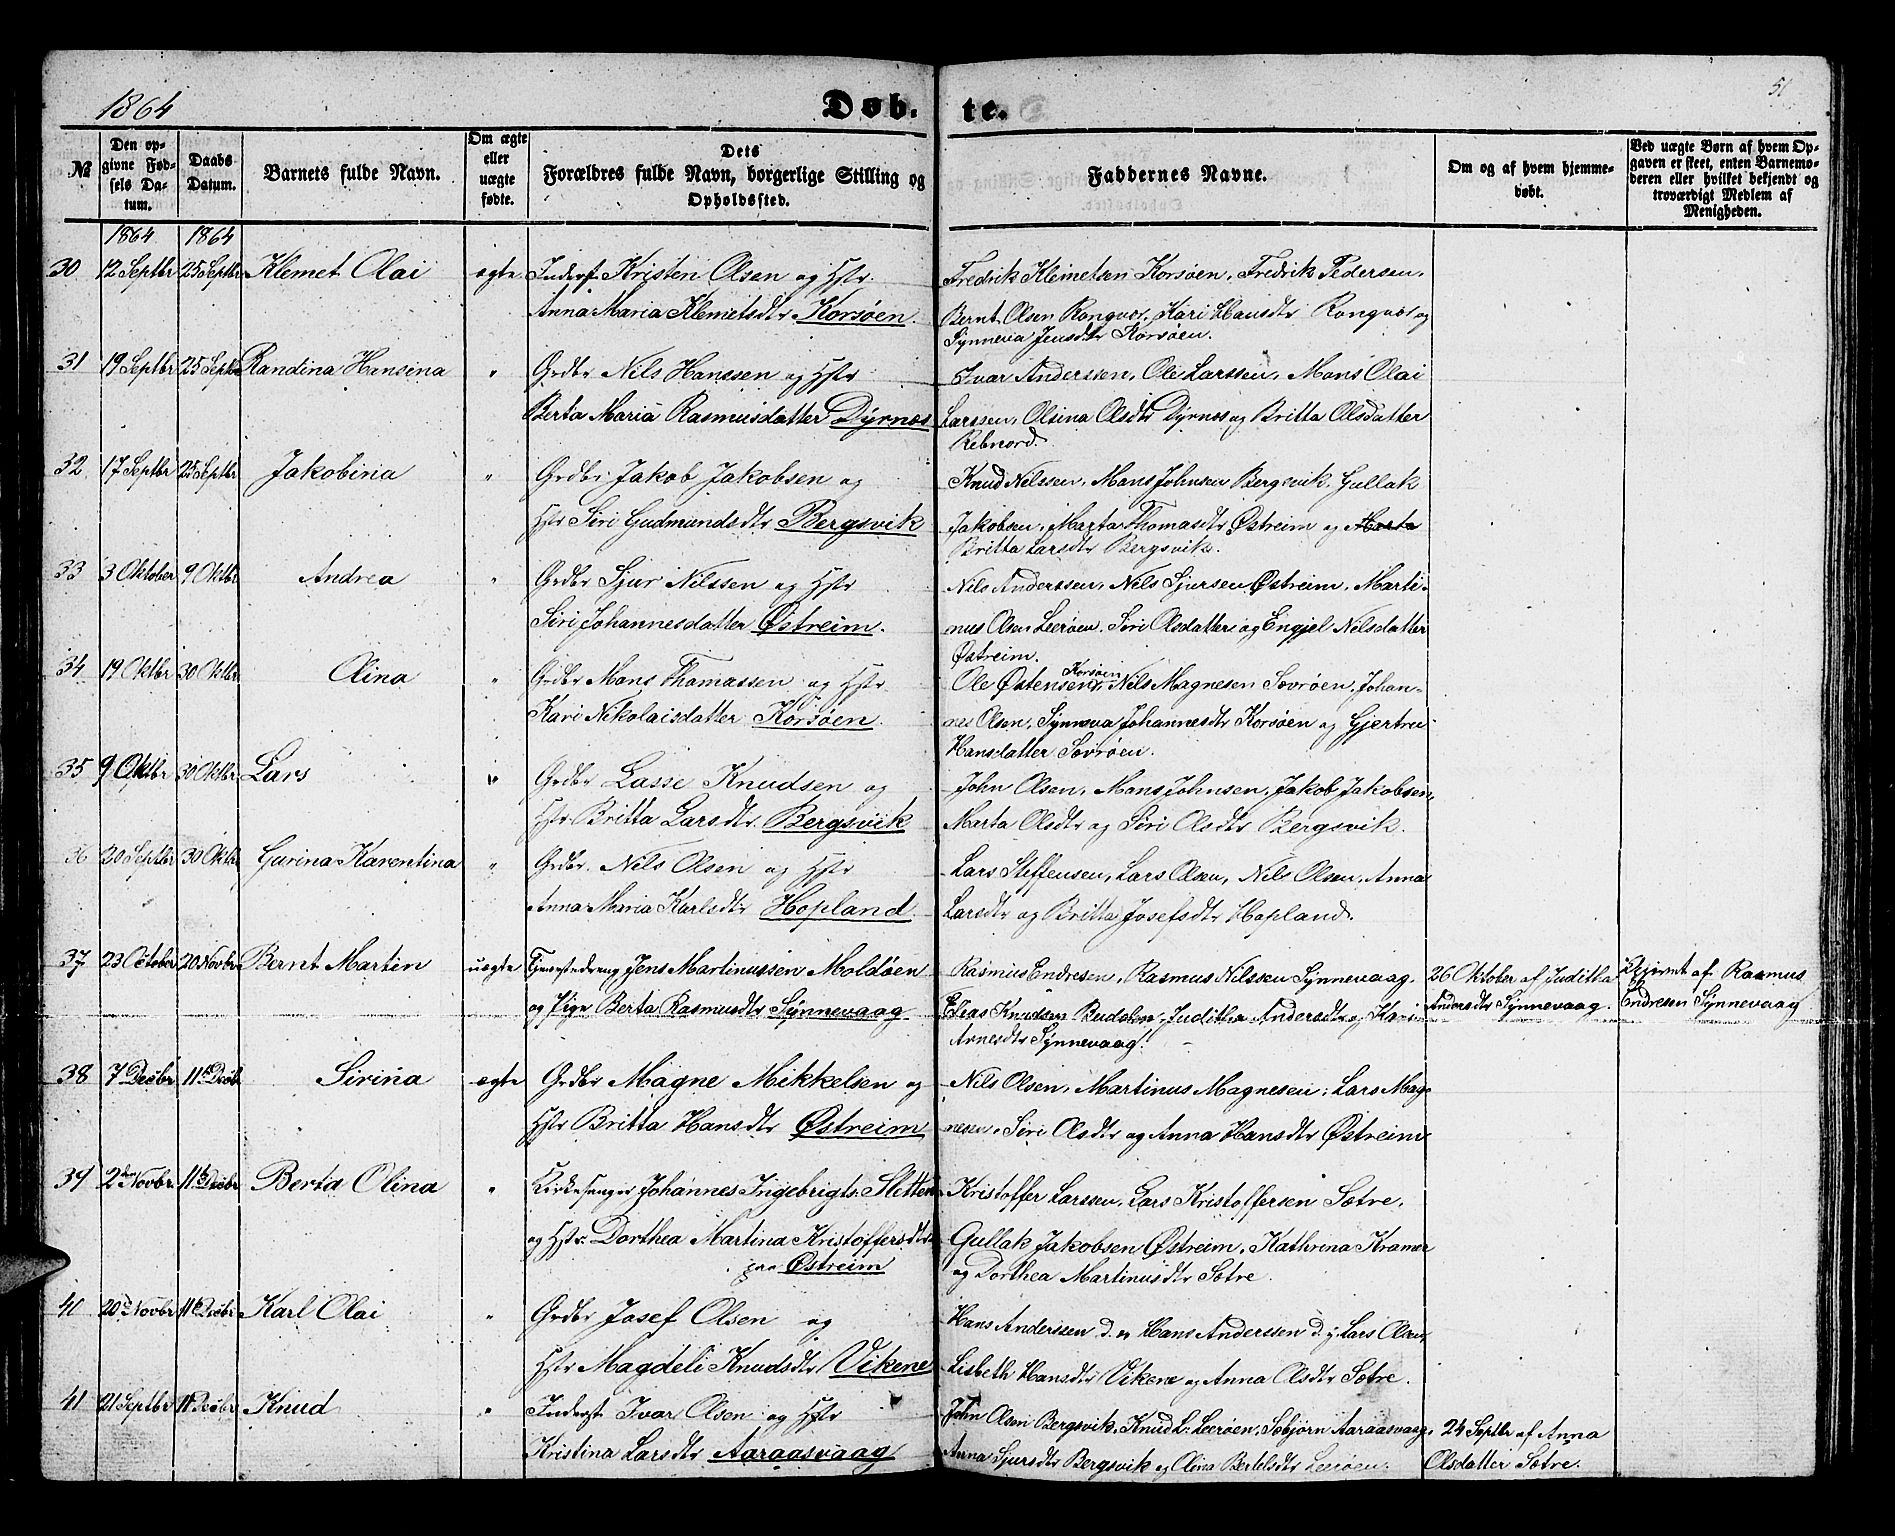 1864
Døb. te.
51
№
Den op-
givne Fød-
sels Da-
tum.
Daabs
Datum.
Barnets fulde Navn.
Om ægte
eller
uægte
fødte.
Dets
Forældres fulde Navn, borgerlige Stilling og
Opholdssted.
Faddernes Navne.
Om og af hvem hjemme-
døbt.
Ved uægte Børn af hvem Op-
gaven er skeet, enten Barnemo-
deren eller hvilket bekjendt og
troværdigt Medlem af
Menigheden.
1864 1864
30 12 Septbr 25 Septbr Klemet Olai ægte Inderst Kristen Olsen og Hstr
Anna Maria Klemetsdtr Korsøen.
Fredrik Kleimetsen Korsøen, Fredrik Pedersen,
Bernt Olsen Rongvør, Kari Hansdtr Rongvør og
Synneva Jensdtr Korsøen.
31 19 Septbr 25 Septbr Randina Hansina " Grdbr Nils Hanssen og Hstr
Berta Maria Rasmusdatter Dyrnes
Ivar Anderssen, Ole Larssen, Mons Olai
Larssen, Olsina Olsdtr Dyrnes og Britta Olsdatter
Rebnord.
32 17 Septbr 25 Septbr Jakobina " Grdbr Jakob Jakobsen og
Hstr Siri Gudmundsdtr Bergsvik
Knud Nilssen, Mons Johnsen Bergsvik, Gullak
Jakobsen, Marta Thomasdtr Østreim og Marta
Britta Larsdtr Bergsvik.
33 3 Oktober 9 Oktbr Andrea " Grdbr Sjur Nilssen og Hstr
Siri Johannesdatter Østreim.
Nils Anderssen, Nils Sjursen Østreim, Marti-
nus Olsen Leerøen, Siri Olsdatter og Engjel Nilsdatter
Østreim.
34 19 Oktbr 30 Oktbr Olina " Grdbr Mons Thomassen og Hstr
Kari Nikolaisdatter Korsøen.
Korsøen
Ole Østensen, Nils Magnesen Sovrøen, Johan-
nes Olsen, Synneva Johannesdtr Korsøen og Gjertru
Hansdatter Sovrøen.
35 9 Oktbr 30 Oktbr Lars " Grdbr Lasse Knudsen og
Hstr Britta Larsdtr Bergsvik
John Olsen, Mons Johnsen, Jakob Jakobsen,
Marta Olsdtr og Siri Olsdtr Bergsvik.
36 20 Septbr 30 Oktbr Gurina Karentina " Grdbr. Nils Olsen og Hstr
Anna Maria Karlsdtr Hopland.
Lars Steffensen, Lars Olsen, Nils Olsen, Anna
Larsdtr og Britta Josefsdtr Hopland.
37 23 October 20 Novbr Bernt Martin uægte Tjenestedreng Jens Martinussen Moldøen
og Pige Berta Rasmusdtr Synnevaag
Rasmus Endresen, Rasmus Nilssen Synnevaag,
Elias Knudsen, Juditha Andersdtr og Kari
Arnesdtr Synnevaag.
26 Oktober af Juditha
Andersdtr Synnevaag.
af Rasmus
Endresen Synnevaag
38 7 Decbr 11 Decbr Sirina ægte Grdbr Magne Mikkelsen og
Hstr Britta Hansdtr Østreim
Nils Olsen, Martinus Magnesen, Lars Mag-
nesen, Siri Olsdtr og Anna Hansdtr Østreim
39 2den Novbr. 11te Decbr Berta Olina " Kirkesanger Johannes Ingebrigts. Sletten
og Hstr. Dorthea Martina Kristoffersdtr
paa Østreim
Kristoffer Larssen, Lars Kristoffersen Sætre,
Gullak Jakobsen Østreim, Kathrina Kramer
og Dorthea Martinusdtr Sætre.
40 20de Novbr 11te Decbr Karl Olai " Grdbr Josef Olsen og
Hstr Magdeli Knudsdtr Vikene
Hans Anderssen d. æ. Hans Anderssen d. y. Lars Olsen,
Lisbeth Hansdtr Vikene og Anna Olsdtr Sætre.
41 21 Septbr 11te Decbr Knud " Inderst Ivar Olsen og Hstr
Kristina Larsdtr Aaraasvaag
John Olsen Bergsvik, Knud L. Leerøen, Sobjørn Aaraasvaag,
Anna Sjursdtr Bergsvik og Olina Bertelsdtr Leerøen.
24 Septbr af Anna
Olsdatter Sætre.